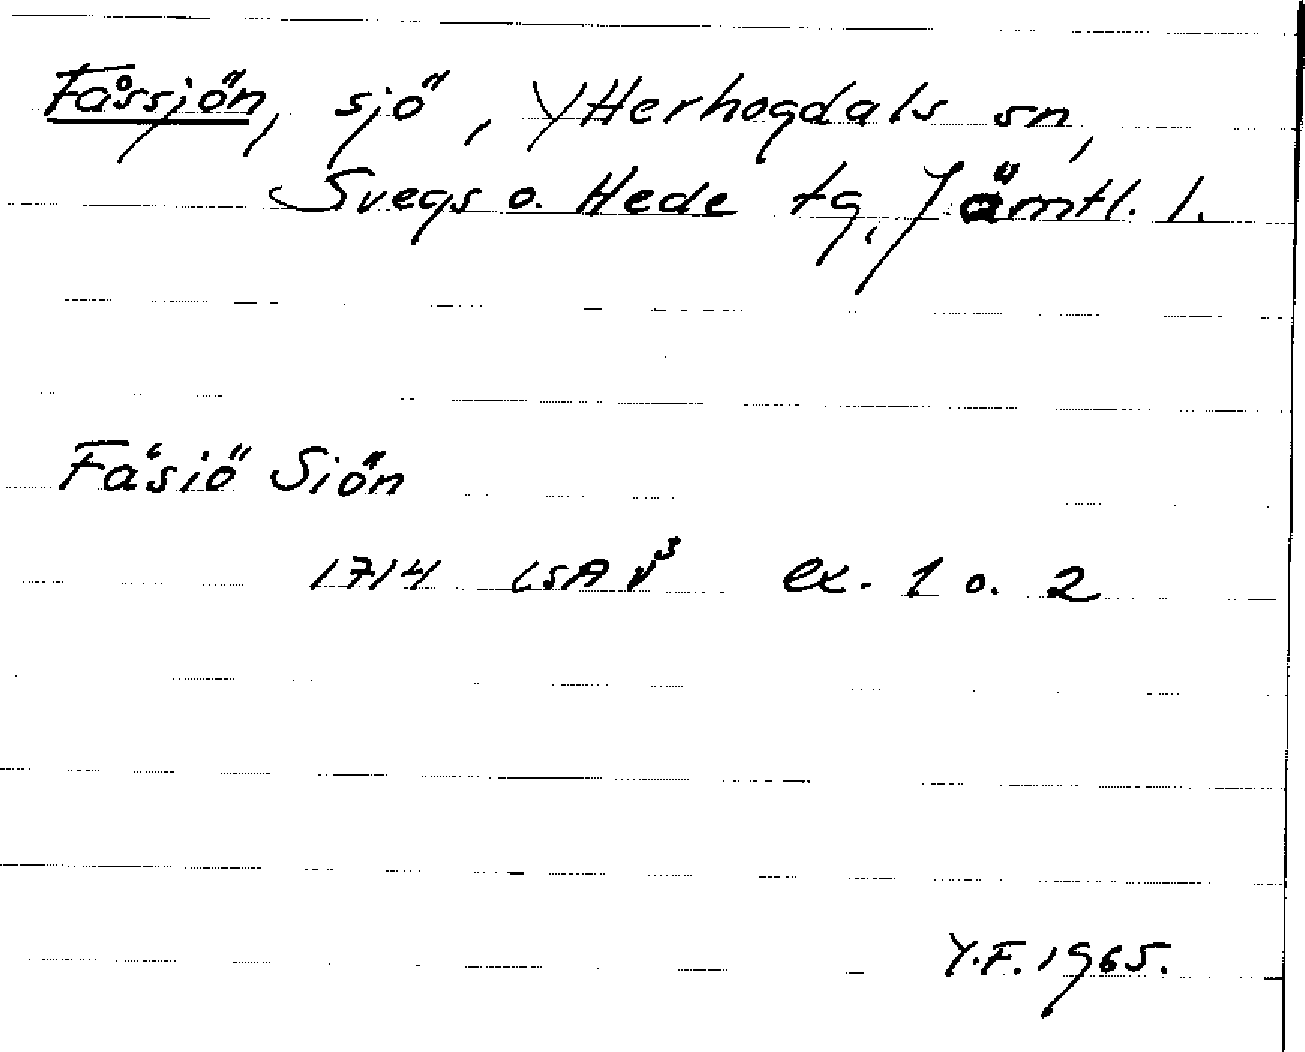 Fåssjön, sjö, Ytterhogdals sn,
Svegs o. Hede tg, Jämtl. l.
Fåsiö Siön
1714 LSA V³ ex. 1 o. 2
Y.F. 1965.